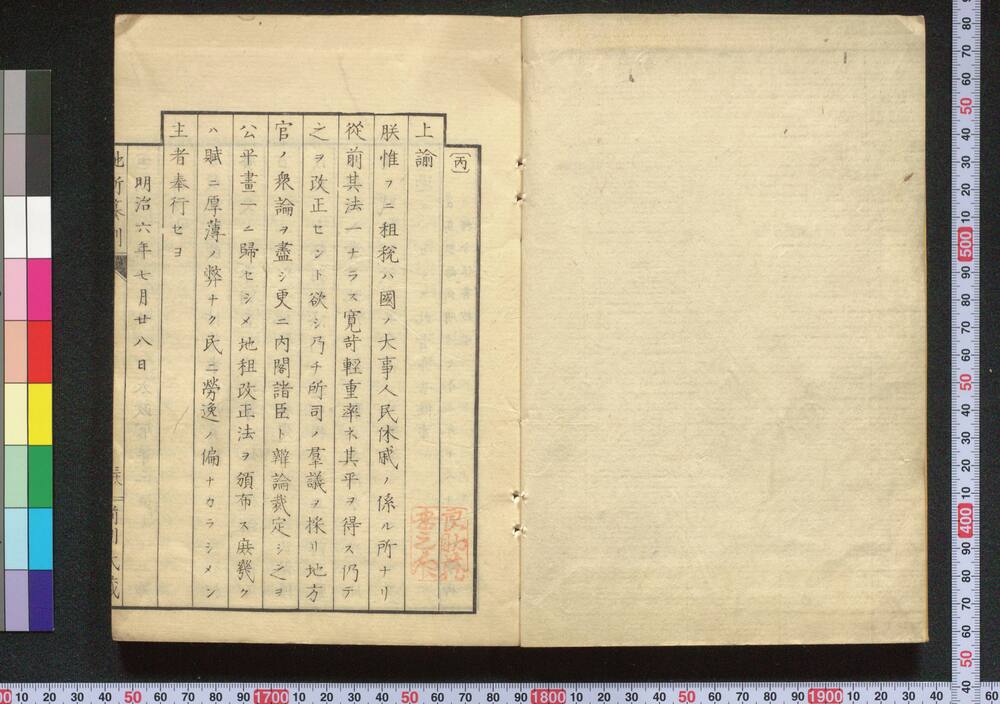 〔丙〕
上諭
朕惟フニ租税ハ國ノ大事人民休戚ノ係ル所ナリ
從前其法一ナラス寛苛輕重率ネ其平ヲ得ス仍テ
之ヲ改正セント欲シ乃チ所司ノ羣議ヲ採リ地方
官ノ衆論ヲ盡シ更ニ内閣諸臣ト辯論裁定シ之ヲ
公平畫一ニ歸セシメ地租改正法ヲ頒布ス庶幾ク
ハ賦ニ厚薄ノ弊ナク民ニ勞逸ノ偏ナカラシメン
主者奉行セヨ
明治六年七月廿八日